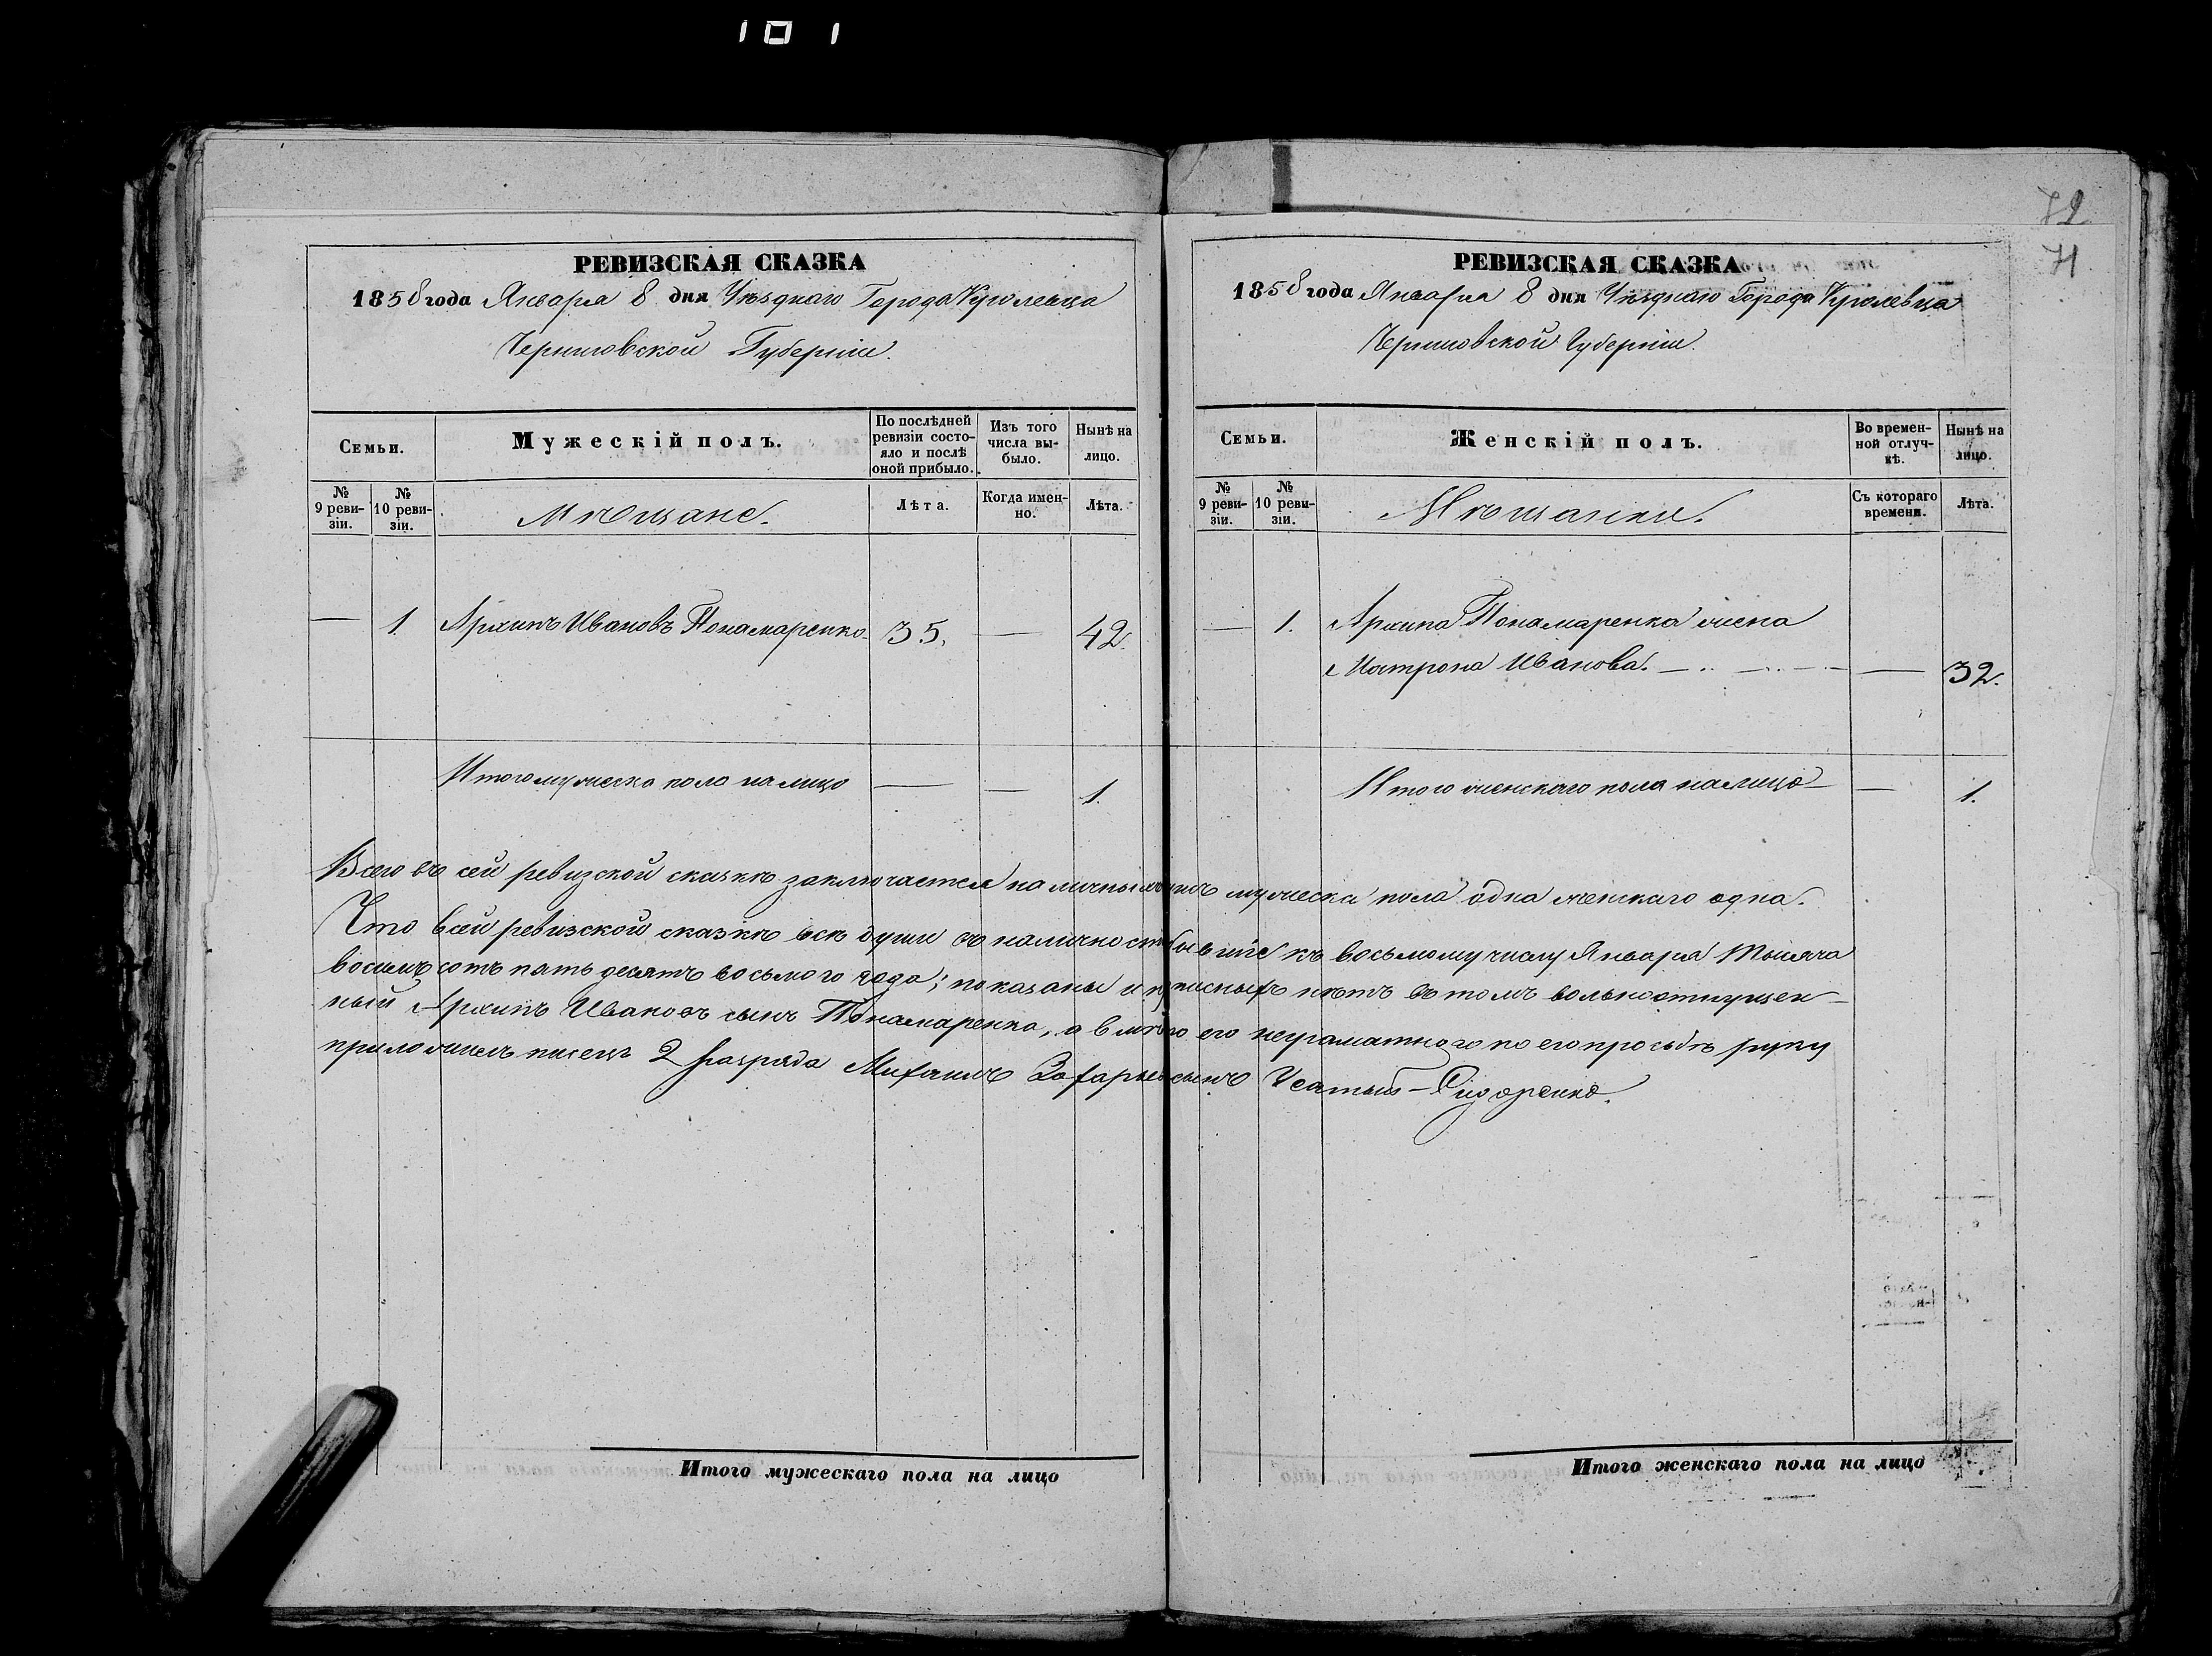 101
РЕВИЗСКАЯ СКАЗКА
1858 года Января 8 дня Уѣзднаго Города Кролевца
Черниговской Губерніи.
Семьи.
Мужескій полъ.
По послѣдней ревизіи состо-
яло и послѣ оной прибыло.
Изъ того числа вы-
было.
Нынѣ на лицо.
№ 9 реви-
зіи.
№ 10 реви-
зіи.
Мѣщане.
Лѣта.
Когда имен-
но.
Лѣта.
— 1. Архипъ Ивановъ Понамаренко. 35. — 42.
Итого мужеска пола на лицо — — 1.
72
71
РЕВИЗСКАЯ СКАЗКА
1858 года Января 8 дня Уѣзднаго Города Кролевца
Черниговской Губерніи.
Семьи.
Женскій полъ.
Во времен-
ной отлуч-
кѣ.
Нынѣ на лицо.
№ 9 реви-
зіи.
№ 10 реви-
зіи.
Мѣщанки.
Съ котораго времени.
Лѣта.
— 1. Архипа Понамаренка жена
Матрона Иванова. — — 32.
Итого женскаго пола на лицо — — 1.
Всего въ сей ревизской сказкѣ заключается наличныхъ мужеска пола одна женскаго одна.
Что в сей ревизской сказкѣ всѣ души въ наличности бывшіе къ восьмому числу Января тысяча
восемъ сотъ пять десятъ восьмого года; показаны и прописныхъ нѣтъ въ томъ вольноотпущен-
ный Архипъ Ивановъ сынъ Понамаренко, а вмѣсто его неграматного по его прозьбѣ руку
приложилъ писецъ 2 разряда Михаилъ Захарьевъ сынъ Усатый-Сидоренко.
Итого мужескаго пола на лицо
Итого женскаго пола на лицо